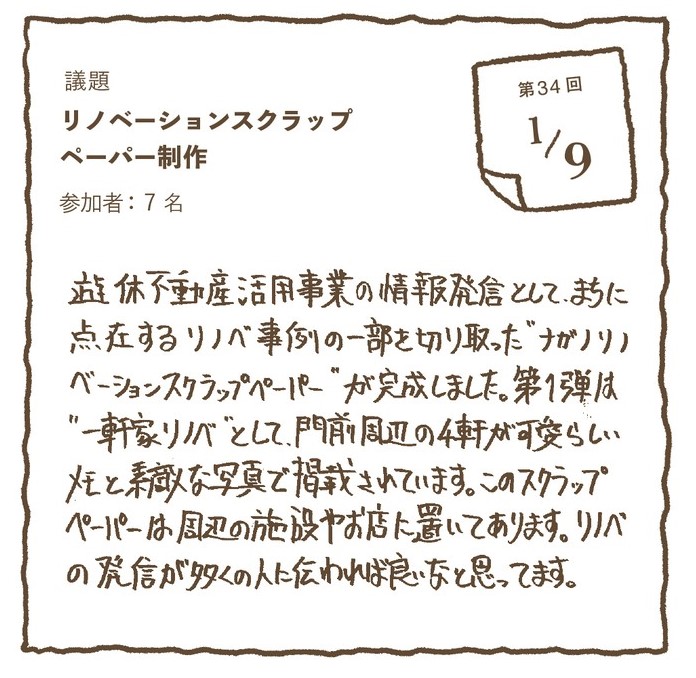 議題
リノベーションスクラップ
ペーパー制作
参加者：7 名
第34回
1/9
遊休不動産活用事業の情報発信として、まちに
点在するリノベ事例の一部を切り取った"ナガノリノ
ベーションスクラップペーパー"が完成しました。第1弾は
"一軒家リノベ"として、門前周辺の4軒が可愛らしい
メモと素敵な写真で掲載されています。このスクラップ
ペーパーは周辺の施設やお店に置いてあります。リノベ
の発信が多くの人に伝われば良いなと思ってます。